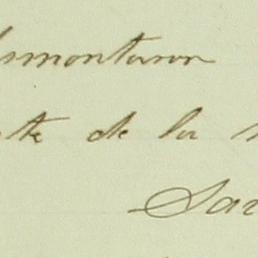 smontaron
te de la
Sar